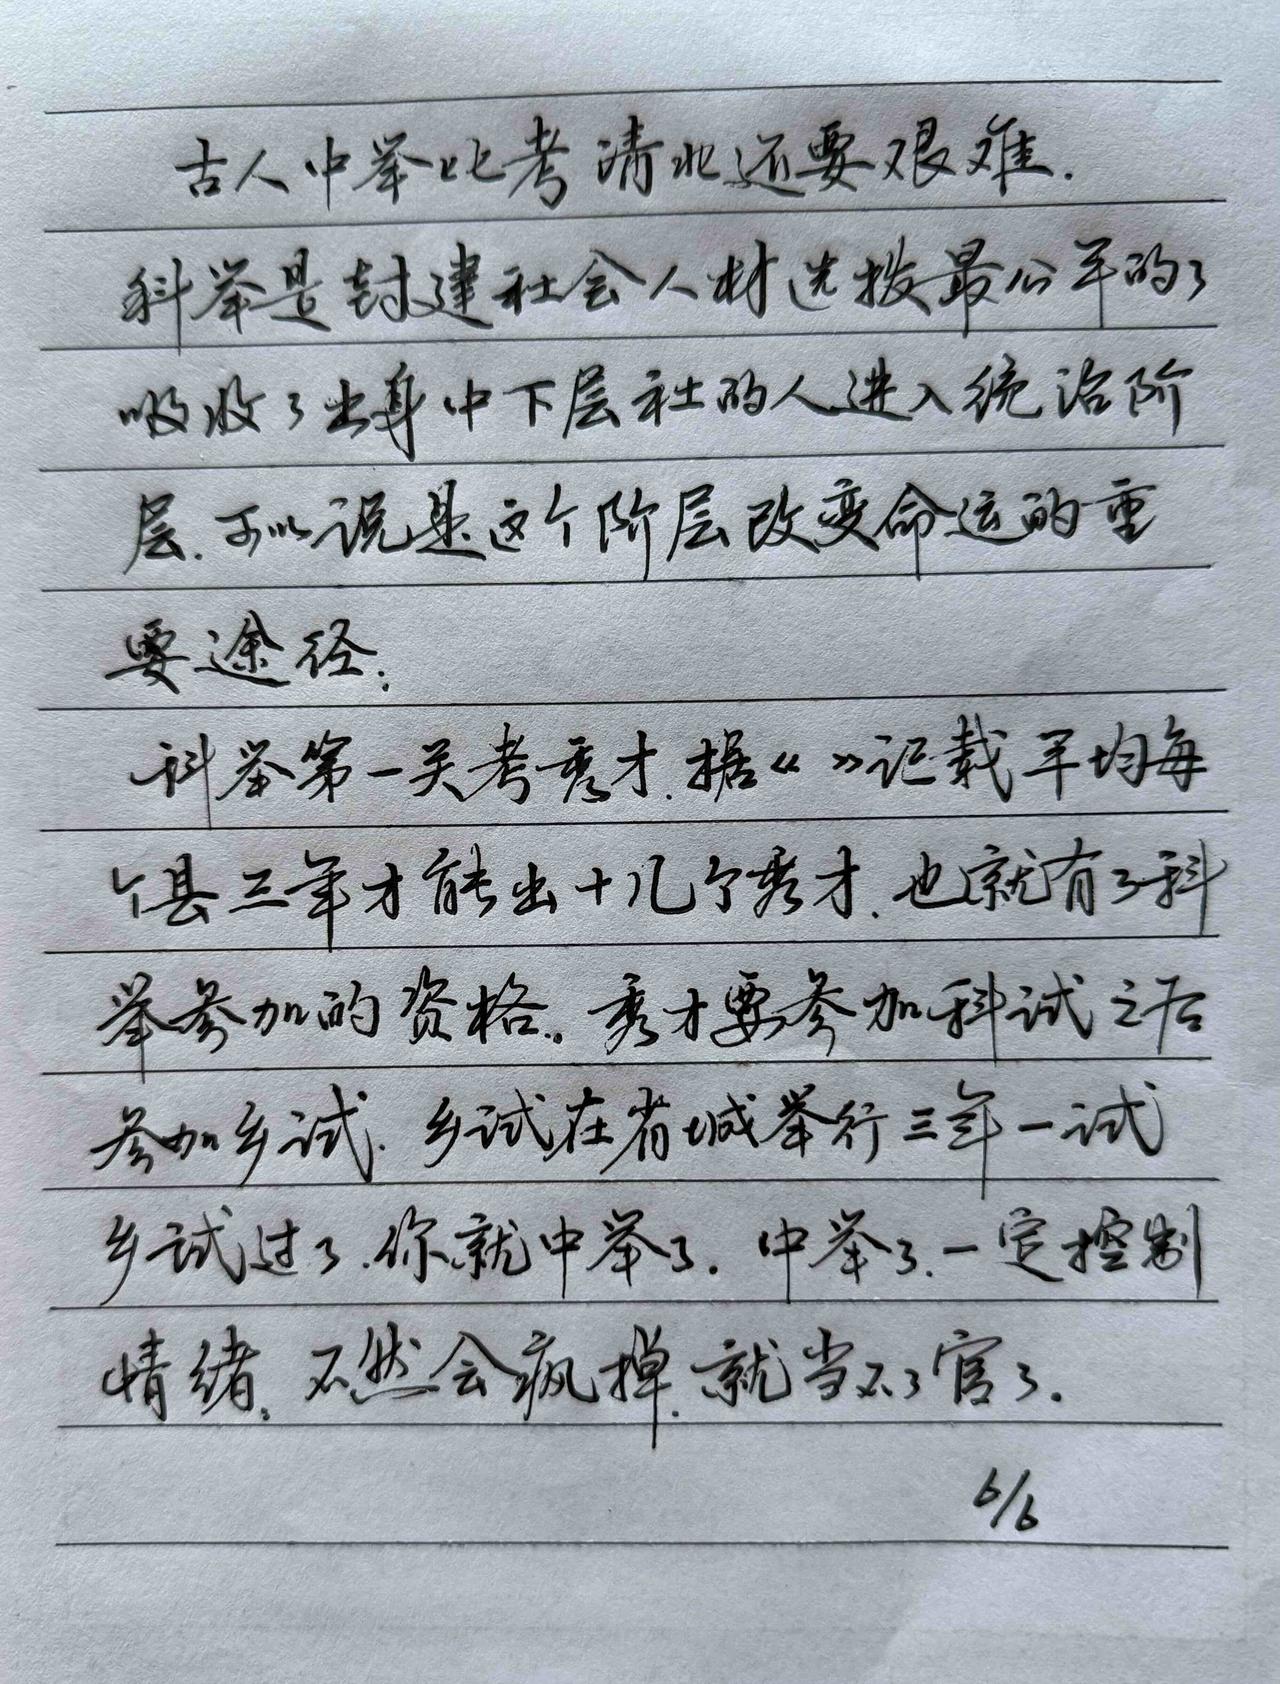 古人中举比考清北还要艰难.
科举是封建社会人材选拔最公平的了
吸收了出身中下层社的人进入统治阶
层.可以说是这个阶层改变命运的重
要途径;
科举第一关考秀才.据《 》记载平均每
个县三年才能出十几个秀才.也就有了科
举参加的资格.秀才要参加科试之后
参加乡试.乡试在省城举行三年一试
乡试过了.你就中举了.中举了.一定控制
情绪.不然会疯掉.就当不了官了.
6/6